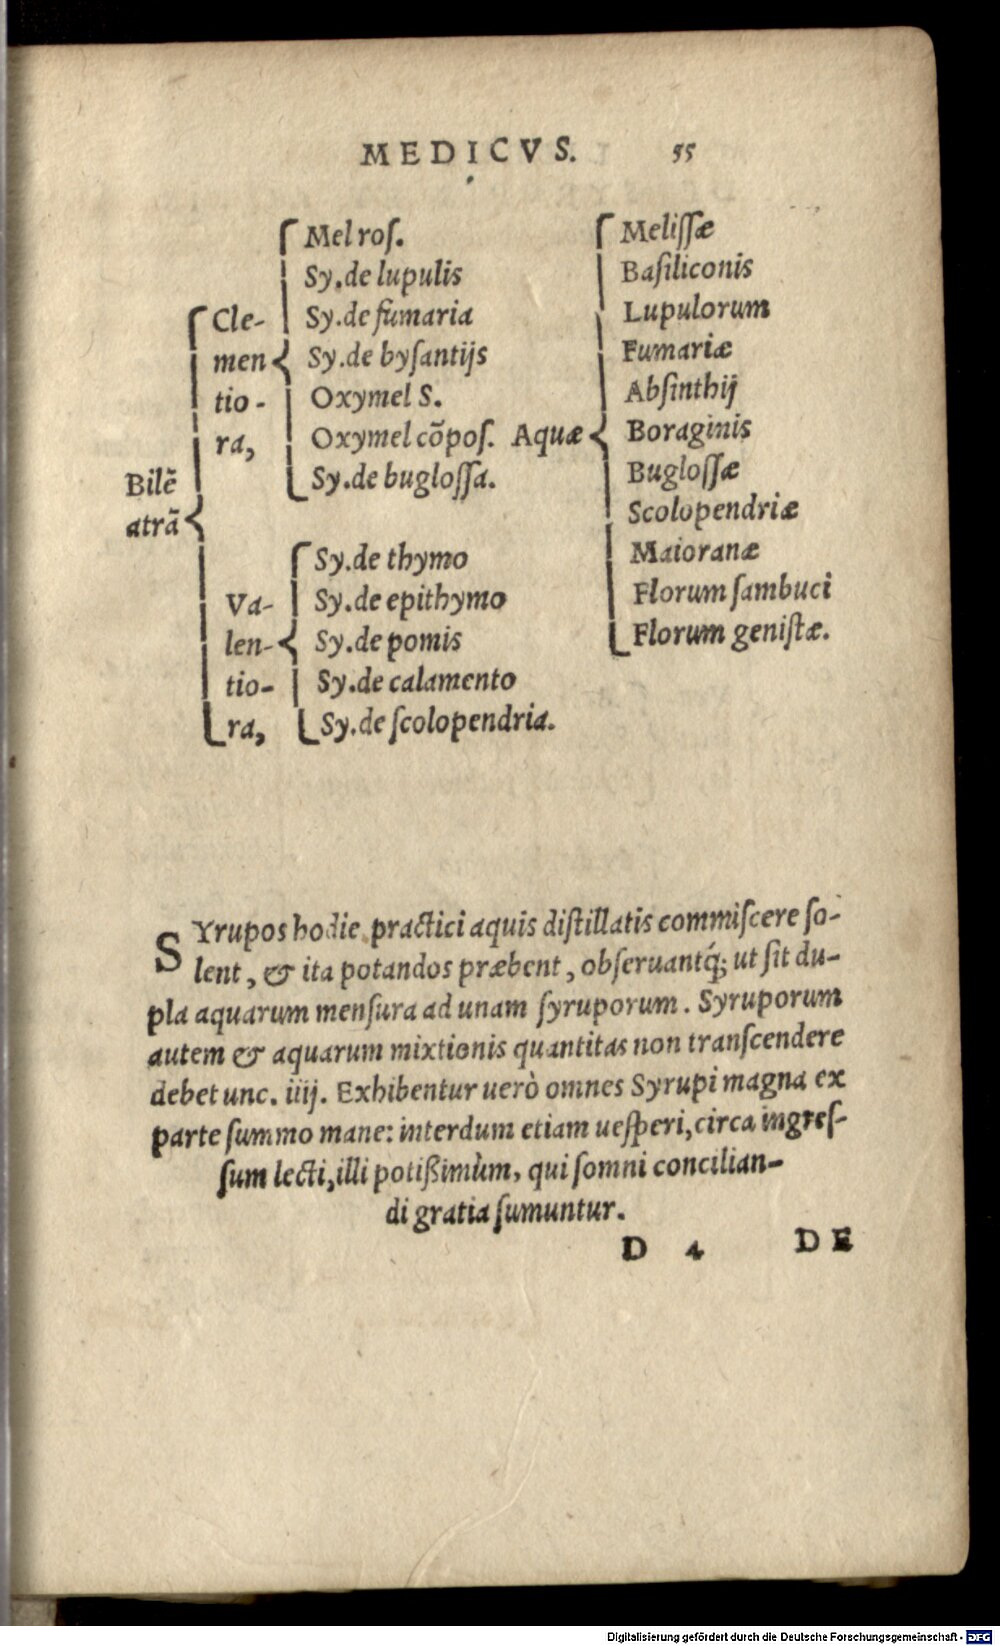 MEDICVS. 55
Bilē
atrā
Cle-
men
tio-
ra,
Mel roſ.
Sy.de lupulis
Sy.de fumaria
Sy.de byſantijs
Oxymel S.
Oxymel cōpoſ.
Sy.de bugloſſa.
Va-
len-
tio-
ra,
Sy.de thymo
Sy.de epithymo
Sy.de pomis
Sy.de calamento
Sy.de ſcolopendria.
Aquæ
Meliſſæ
Baſiliconis
Lupulorum
Fumariæ
Abſinthij
Boraginis
Bugloſſæ
Scolopendriæ
Maioranæ
Florum ſambuci
Florum geniſtæ.
SYrupos hodie practici aquis diſtillatis commiſcere ſo-
lent, & ita potandos præbent, obſeruantq́; ut ſit du-
pla aquarum menſura ad unam ſyruporum. Syruporum
autem & aquarum mixtionis quantitas non tranſcendere
debet unc. iiij. Exhibentur uerò omnes Syrupi magna ex
parte ſummo mane: interdum etiam ueſperi, circa ingreſ-
ſum lecti, illi potißimùm, qui ſomni concilian-
di gratia ſumuntur.
D 4 DE
Digitalisierung gefördert durch die Deutsche Forschungsgemeinschaft - DFG